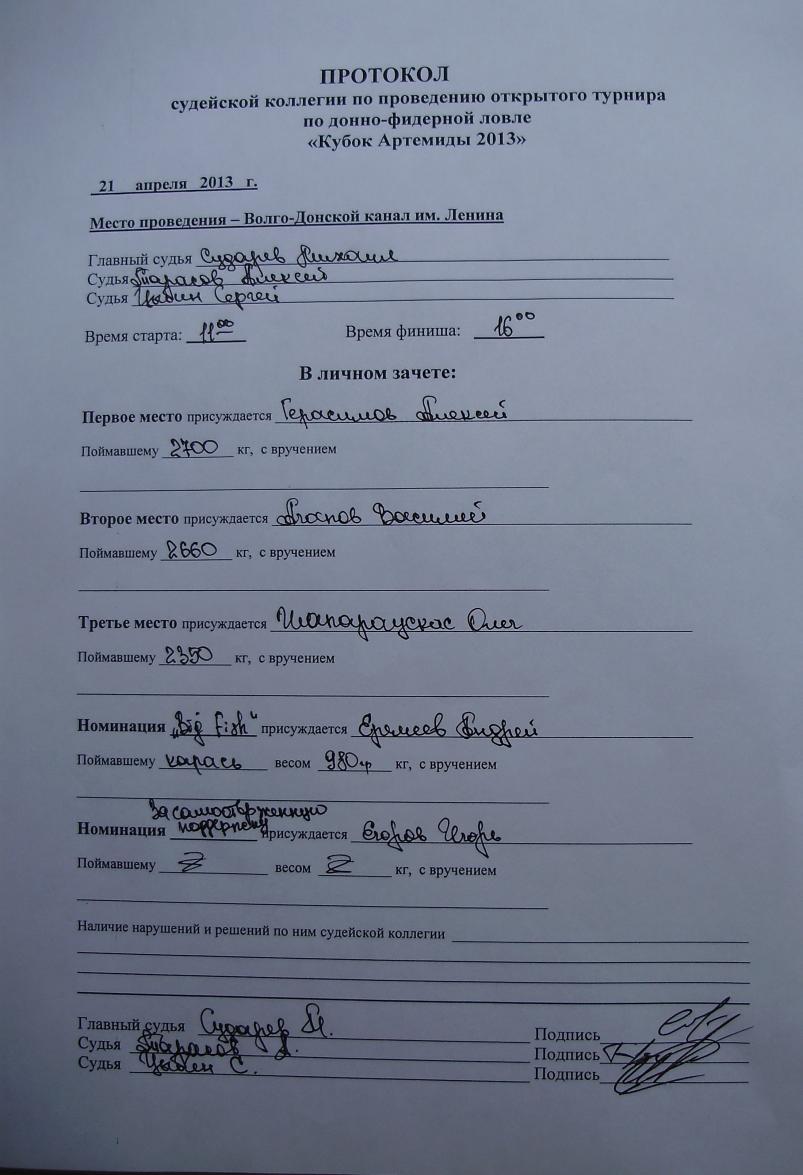 ПРОТОКОЛ
судейской коллегии по проведению открытого турнира
по донно-фидерной ловле
«Кубок Артемиды 2013»
21 апреля 2013 г.
Место проведения – Волго-Донской канал им. Ленина
Главный судья Сударев Михаил
Судья Тарасов Алексей
Судья Цыбин Сергей
Время старта: 11 00 Время финиша: 16 00
В личном зачете:
Первое место присуждается Герасимов Алексей
Поймавшему 2700 кг, с вручением
Второе место присуждается Агапов Василий
Поймавшему 2660 кг, с вручением
Третье место присуждается Шапараускас Олег
Поймавшему 2350 кг, с вручением
Номинация „Big Fish" присуждается Еремеев Андрей
Поймавшему карась весом 980гр кг, с вручением
За самоотверженную
Номинация поддержку присуждается Егоров Игорь
Поймавшему весом кг, с вручением
Наличие нарушений и решений по ним судейской коллегии
Главный судья Сударев М. Подпись
Судья Тарасов А. Подпись
Судья Цыбин С. Подпись